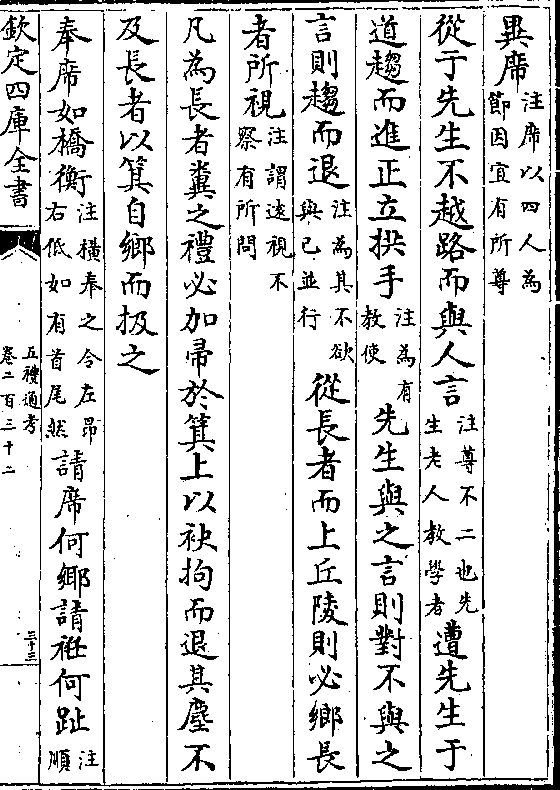 異席注席以四人為節因宜有所尊
從于先生不越路而與人言注尊不二也先生老人教學者遭先生于
道趨而進正立拱手注為有教使先生與之言則對不與之
言則趨而退注為其不欲與己並行從長者而上丘陵則必鄉長
者所視注謂遠視不察有所問
凡為長者糞之禮必加帚於箕上以袂拘而退其塵不
及長者以箕自鄉而扱之
奉席如橋衡注橫奉之令左昂右低如有首尾然請席何鄉請衽何趾注順
欽定四庫全書
五禮通考
卷二百三十二
三十三